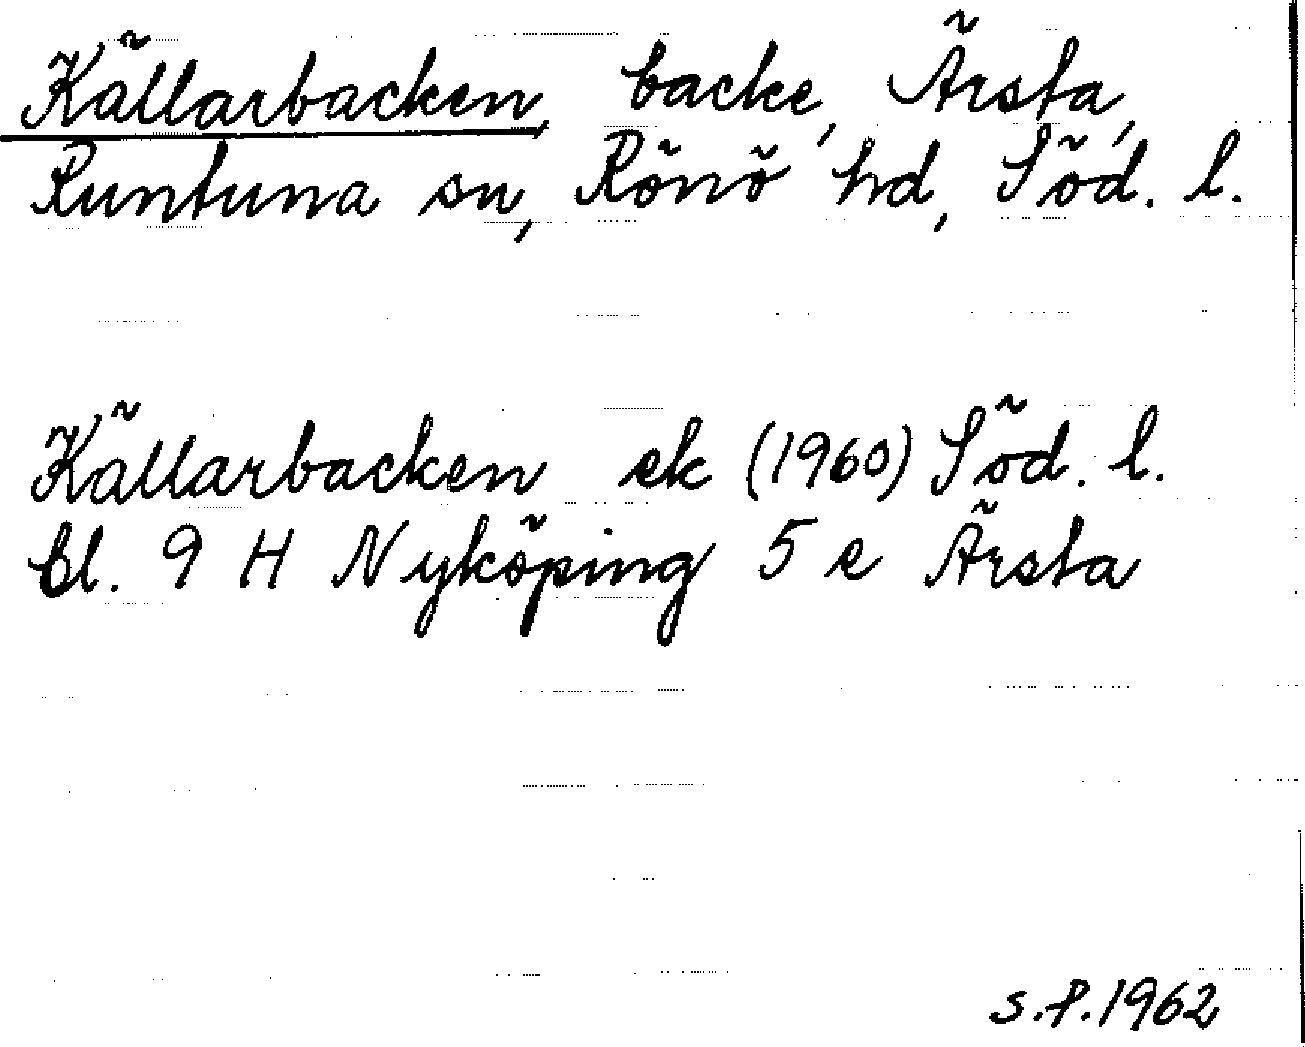 Källarbacken, backe, Ärsta,
Runtuna sn, Rönö hd, Söd. l.
Källarbacken ek (1960) Söd. l.
bl. 9 H Nyköping 5 e Ärsta
S.P.1962